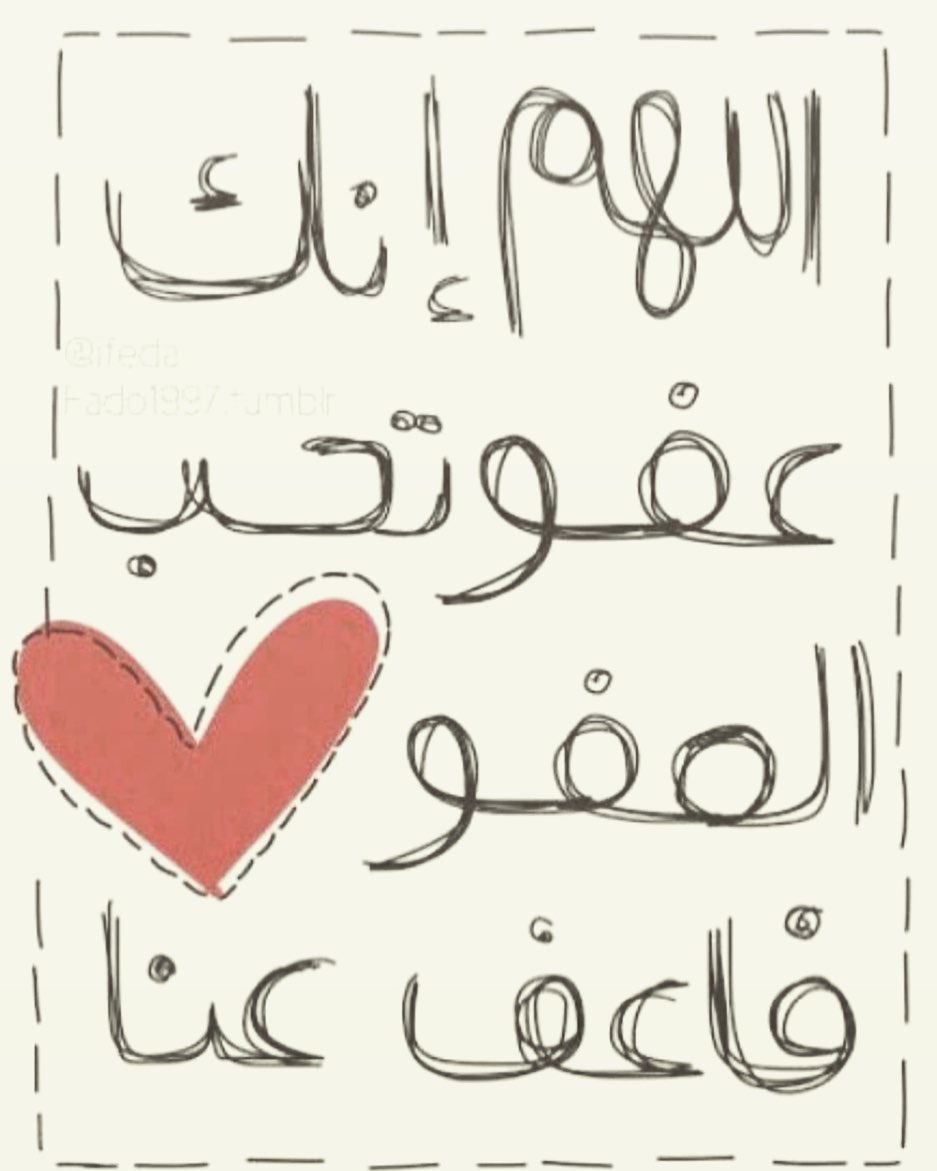 اللهم إنك
@ifeda
Fado1997.tumblr
عفو تحب
العفو
فاعف عنا